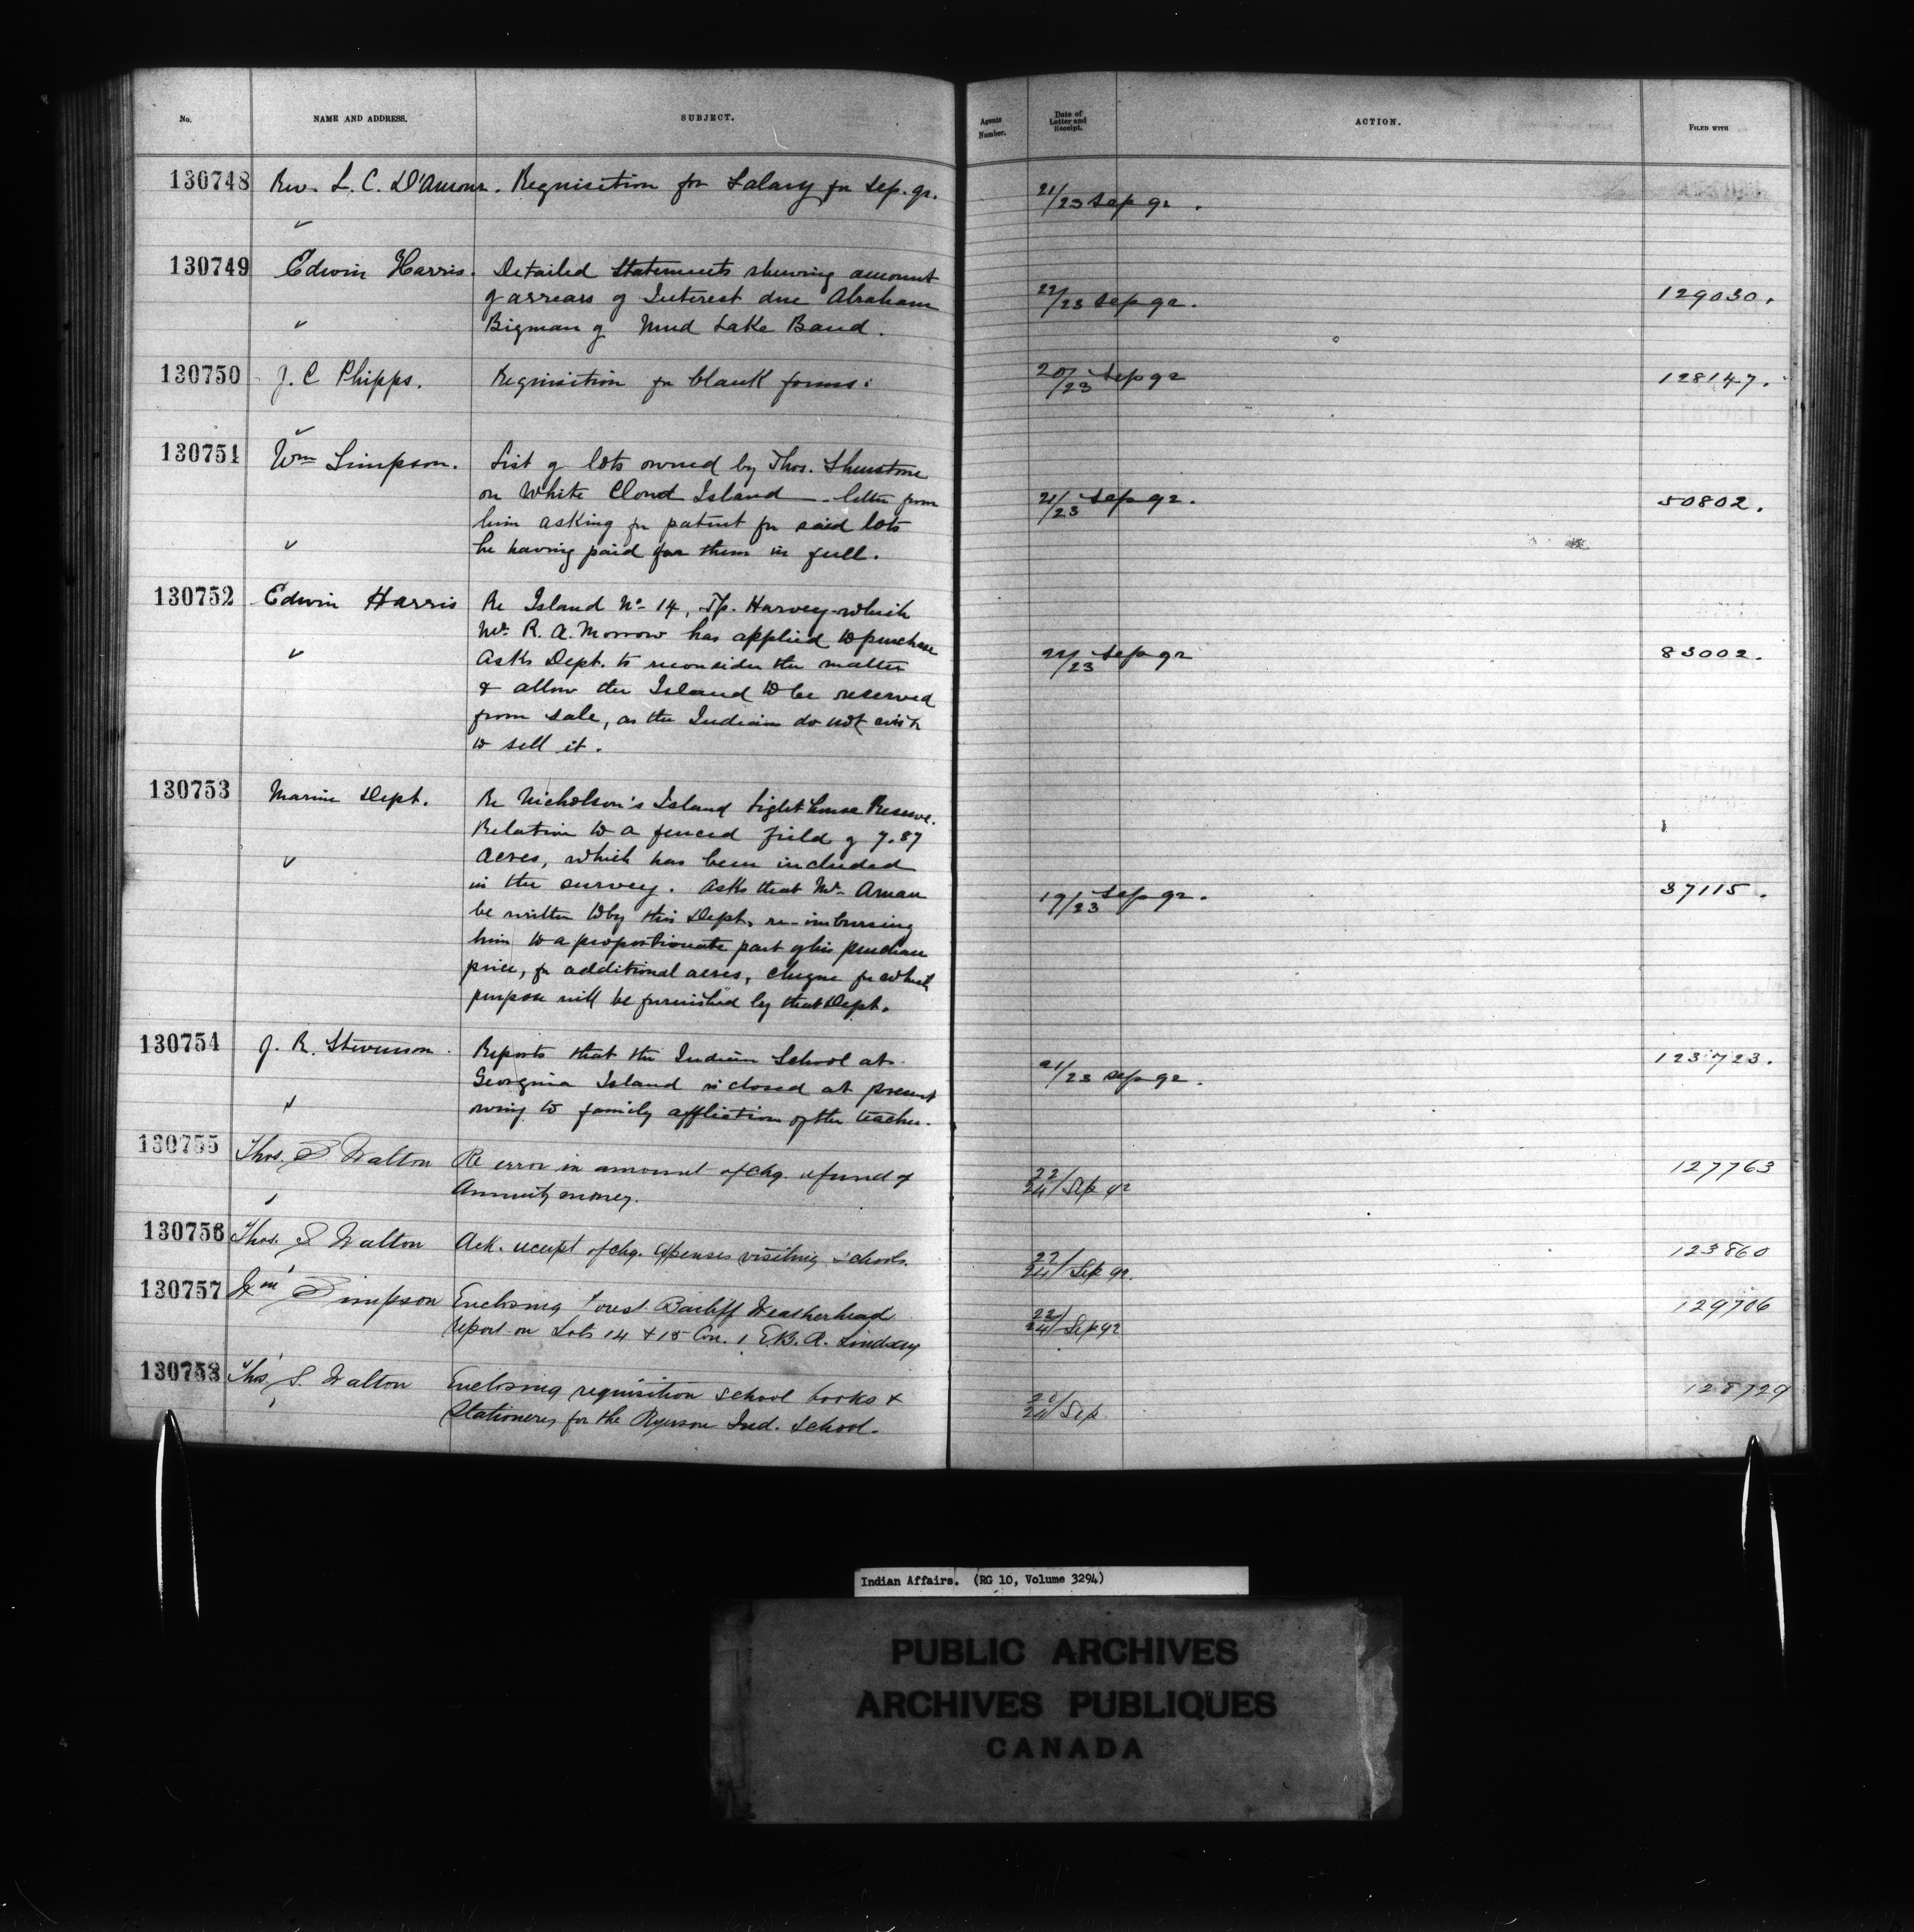 No. NAME AND ADDRESS. SUBJECT. Agents Number. Date of Letter and Receipt. ACTION. FILED WITH
130748 Rev. L. C. D'Amour. Requisition for Salary for Sep. qr. 21/23 Sep 92.
130749 Edwin Harris. Detailed Statements shewing amount
of arrears of Interest due Abraham 22/23 Sep 92. 129030.
Bigman of Mud Lake Band.
130750 J. C Phipps. Requisition for blank forms. 20/23 Sep 92 128147.
130751 Wm Simpson. List of lots owned by Thos. Shenstone
on White Cloud Island - letter from 21/23 Sep 92. 50802.
him asking for patent for said lots
he having paid for them in full.
130752 Edwin Harris Re Island No 14, Tp. Harvey which
Mr. R. A. Morrow has applied to purchase
Asks Dept. to reconsider the matter 22/23 Sep 92 83002.
& allow the Island to be reserved
from sale, as the Indians do not wish
to sell it.
130753 Marine Dept. Re Nicholson's Island Light house Reserve.
Relation to a fenced field of 7.87
acres, which has been included
in the survey. Asks that Mr. 19/23 Sep 92. 37115.
be written to by this Dept. re-imbursing
him to a proportionate part of his purchase
price, for additional acres, cheque for which
purpose will be furnished by that Dept.
130754 J. R. Stevenson. Reports that the Indian School at
Georgina Island is closed at present 21/23 Sep 92. 123723.
owing to family affliction of the teacher.
130755 Thos. S. Walton Re error in amount of chq. refund of 22/24 Sep 92 127763
Annuity money.
130756 Thos. S Walton Ack. receipt of chq. expenses visiting schools. 22/24 Sep 92. 123860
130757 Wm Simpson Enclosing Forest Bailiff Weatherhead
report on Lots 14 & 15 Con. 1 E.B.R. Lindsay 22/24 Sep 92 129706
130758 Thos. S. Walton Enclosing requisition school books & 128729
Stationery for the Ryerson Ind. School. 24 Sep
Indian Affairs. (RG 10, Volume 3294)
PUBLIC ARCHIVES
ARCHIVES PUBLIQUES
CANADA